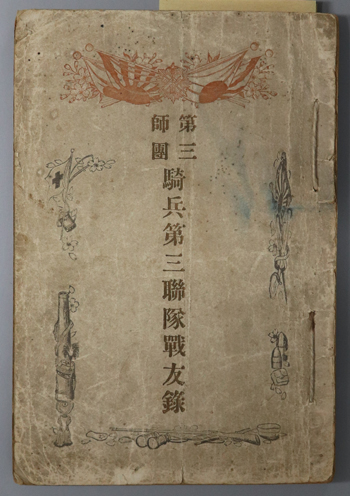 第三師團
騎兵第三聯隊戰友錄